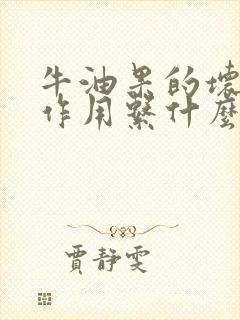 牛油果的壞
作用繫什麼
賈靜雯